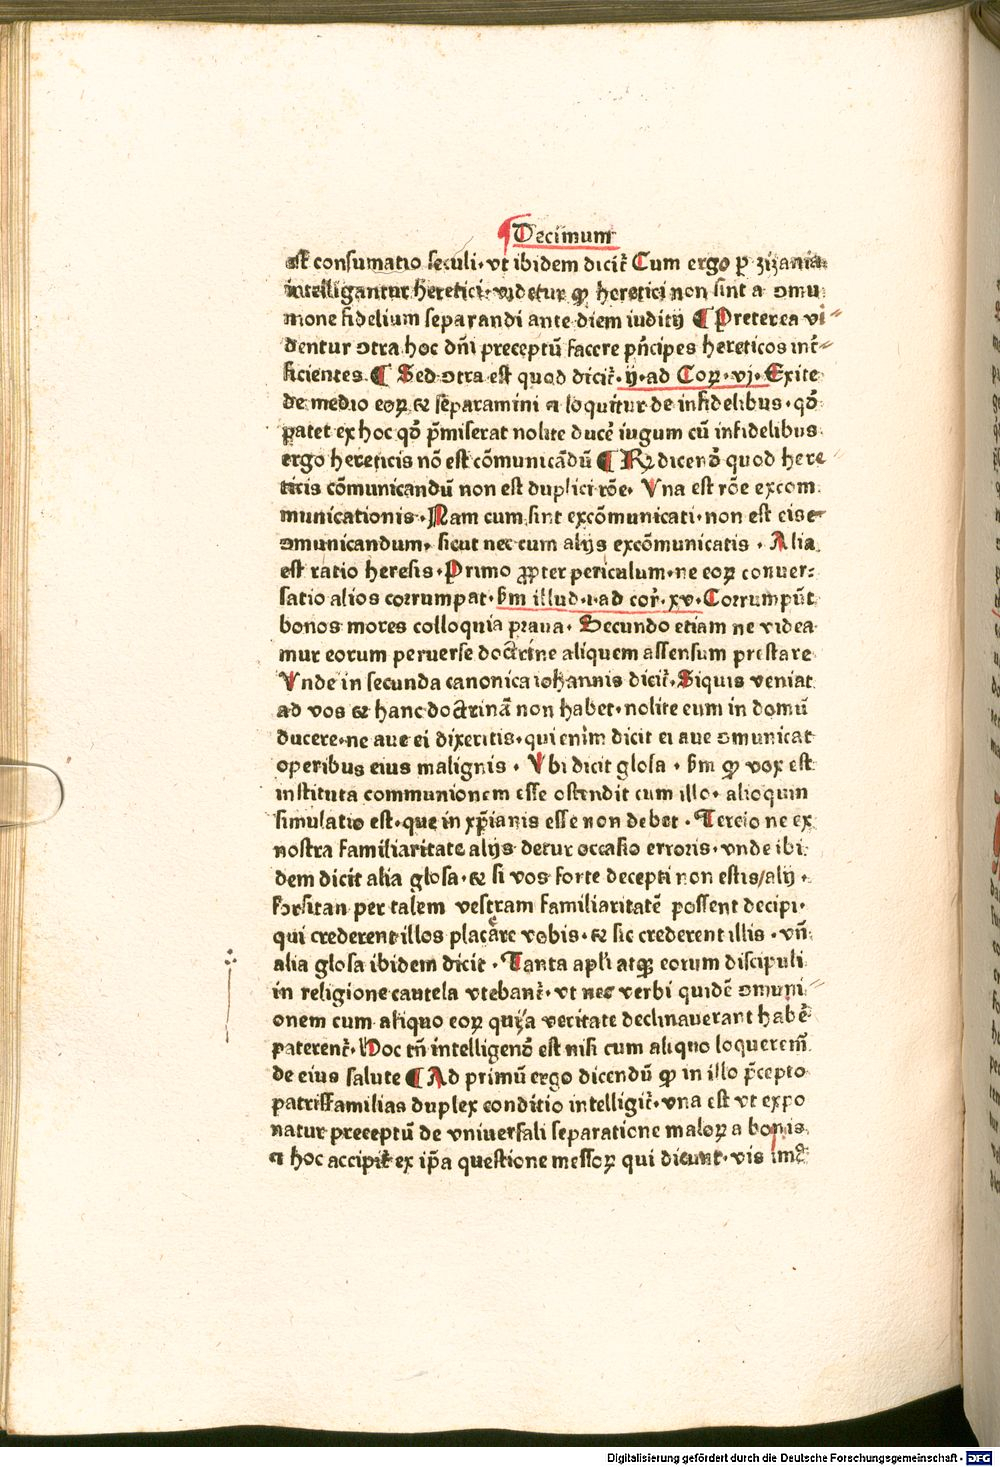 Decimum
est consumatio seculi· vt ibidem dicit᷑ Cum ergo p zizania
intelligantur heretici· videtur ꝙ heretici non sint a ↄmu
nione fidelium separandi ante diem iuditij ¶ Preterea vi
dentur ↄtra hoc dñi preceptū facere pñcipes hereticos int᷑
ficientes ¶ Sed ↄtra est quod dicit᷑· ij· ad Coꝝ· vj· Exite
de medio eoꝝ & separamini a loquitur de infidelibus· qō
patet ex hoc qō p̄miserat nolite ducē iugum cū infidelibus
ergo hereticis nō est cōmunicādū ¶ Rꝝ dicendō quod here
ticis cōmunicandū non est duplici rōe· Vna est rōe excom
municationis· Nam cum sint excōmunicati· non est eis e
ↄmunicandum· sicut nec cum alijs excōmunicatis · Alia
est ratio heresis· Primo ꝓpter periculum· ne eoꝝ conuer:
satio alios corrumpat· ẞm illud· i· ad cor᷑· xv· Corrumpūt
bonos mores colloquia praua· Secundo etiam ne videa
mur eorum peruerse doctrine aliquem assensum prestare
Vnde in secunda canonica iohannis dicit᷑· Siquis veniat
ad vos & hanc doctrinā non habet· nolite eum in domū
ducere· ne aue ei dixeritis· qui enim dicit ei aue ↄmunicat
operibus eius malignis · Vbi dicit glosa · ẞm ꝙ vox est
instituta communionem esse ostendit cum illo· alioquin
simulatio est· que in xp̄ianis esse non debet · Tercio ne ex
nostra familiaritate alijs detur occasio erroris· vnde ibi
dem dicit alia glosa· & si vos forte decepti non estis/alij ·
forsitan per talem vestram familiaritatē possent decipi·
qui crederent illos placere vobis· & sic crederent illis · vñ
alia glosa ibidem dicit · Tanta apl̄i atꝙ eorum discipuli
in religione cautela vtebant᷑· vt nec verbi quidē ↄmuni
onem cum aliquo eoꝝ qui a veritate declinauerant habē
paterent᷑· Hoc tñ intelligendō est nisi cum aliquo loquerem̄
de eius salute ¶ Ad primū ergo dicendū ꝙ in illo p̄cepto
patrisfamilias duplex conditio intelligit᷑· vna est vt expo
natur preceptū de vniuersali separatione maloꝝ a bonis
a hoc accipit᷑ ex ip̄a questione messoꝝ qui dicunt· vis im᷑
Digitalisierung gefördert durch die Deutsche Forschungsgemeinschaft - DFG